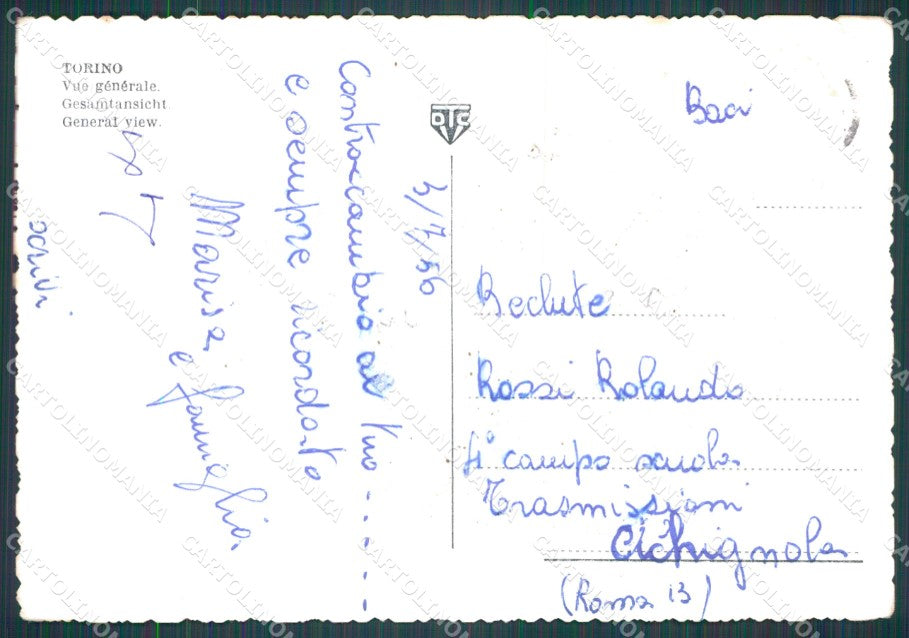 TORINO
Vue générale.
Gesamtansicht.
General view.
3/7/56
Contraccambio al tuo - - - - - -
e sempre ricordato
Marisa
e famiglia.
scrivi
OTC
Baci
Recluta
Rossi Rolando
4° campo scuola
Trasmissioni
Cichignola
(Roma 13)
CARTOLINOMANIA